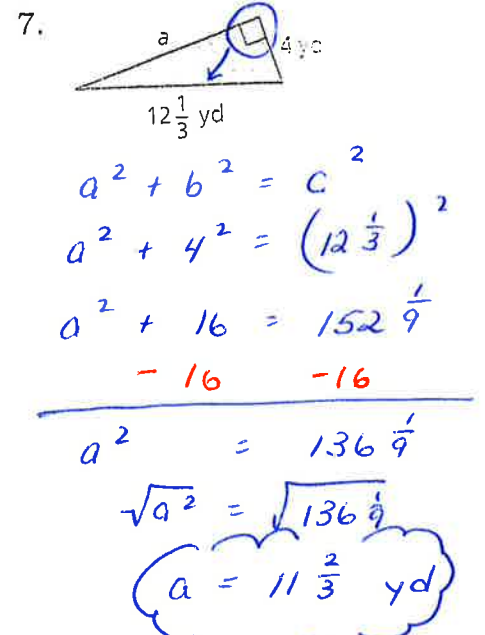 7.
a
4 yd
12 1/3 yd
a² + b² = c²
a² + 4² = (12 1/3)²
a² + 16 = 152 1/9
- 16 -16
a² = 136 1/9
√a² = √136 1/9
a = 11 2/3 yd